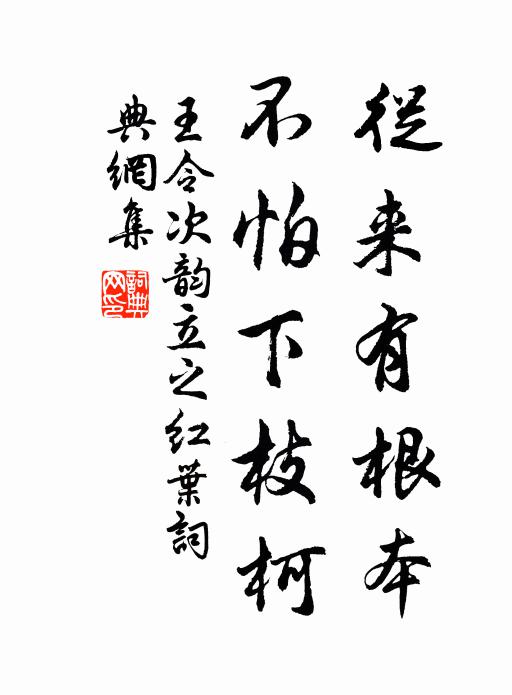 從来有根本
不怕下枝柯
王令次韵立之红葉詞
典網集
詞典網印